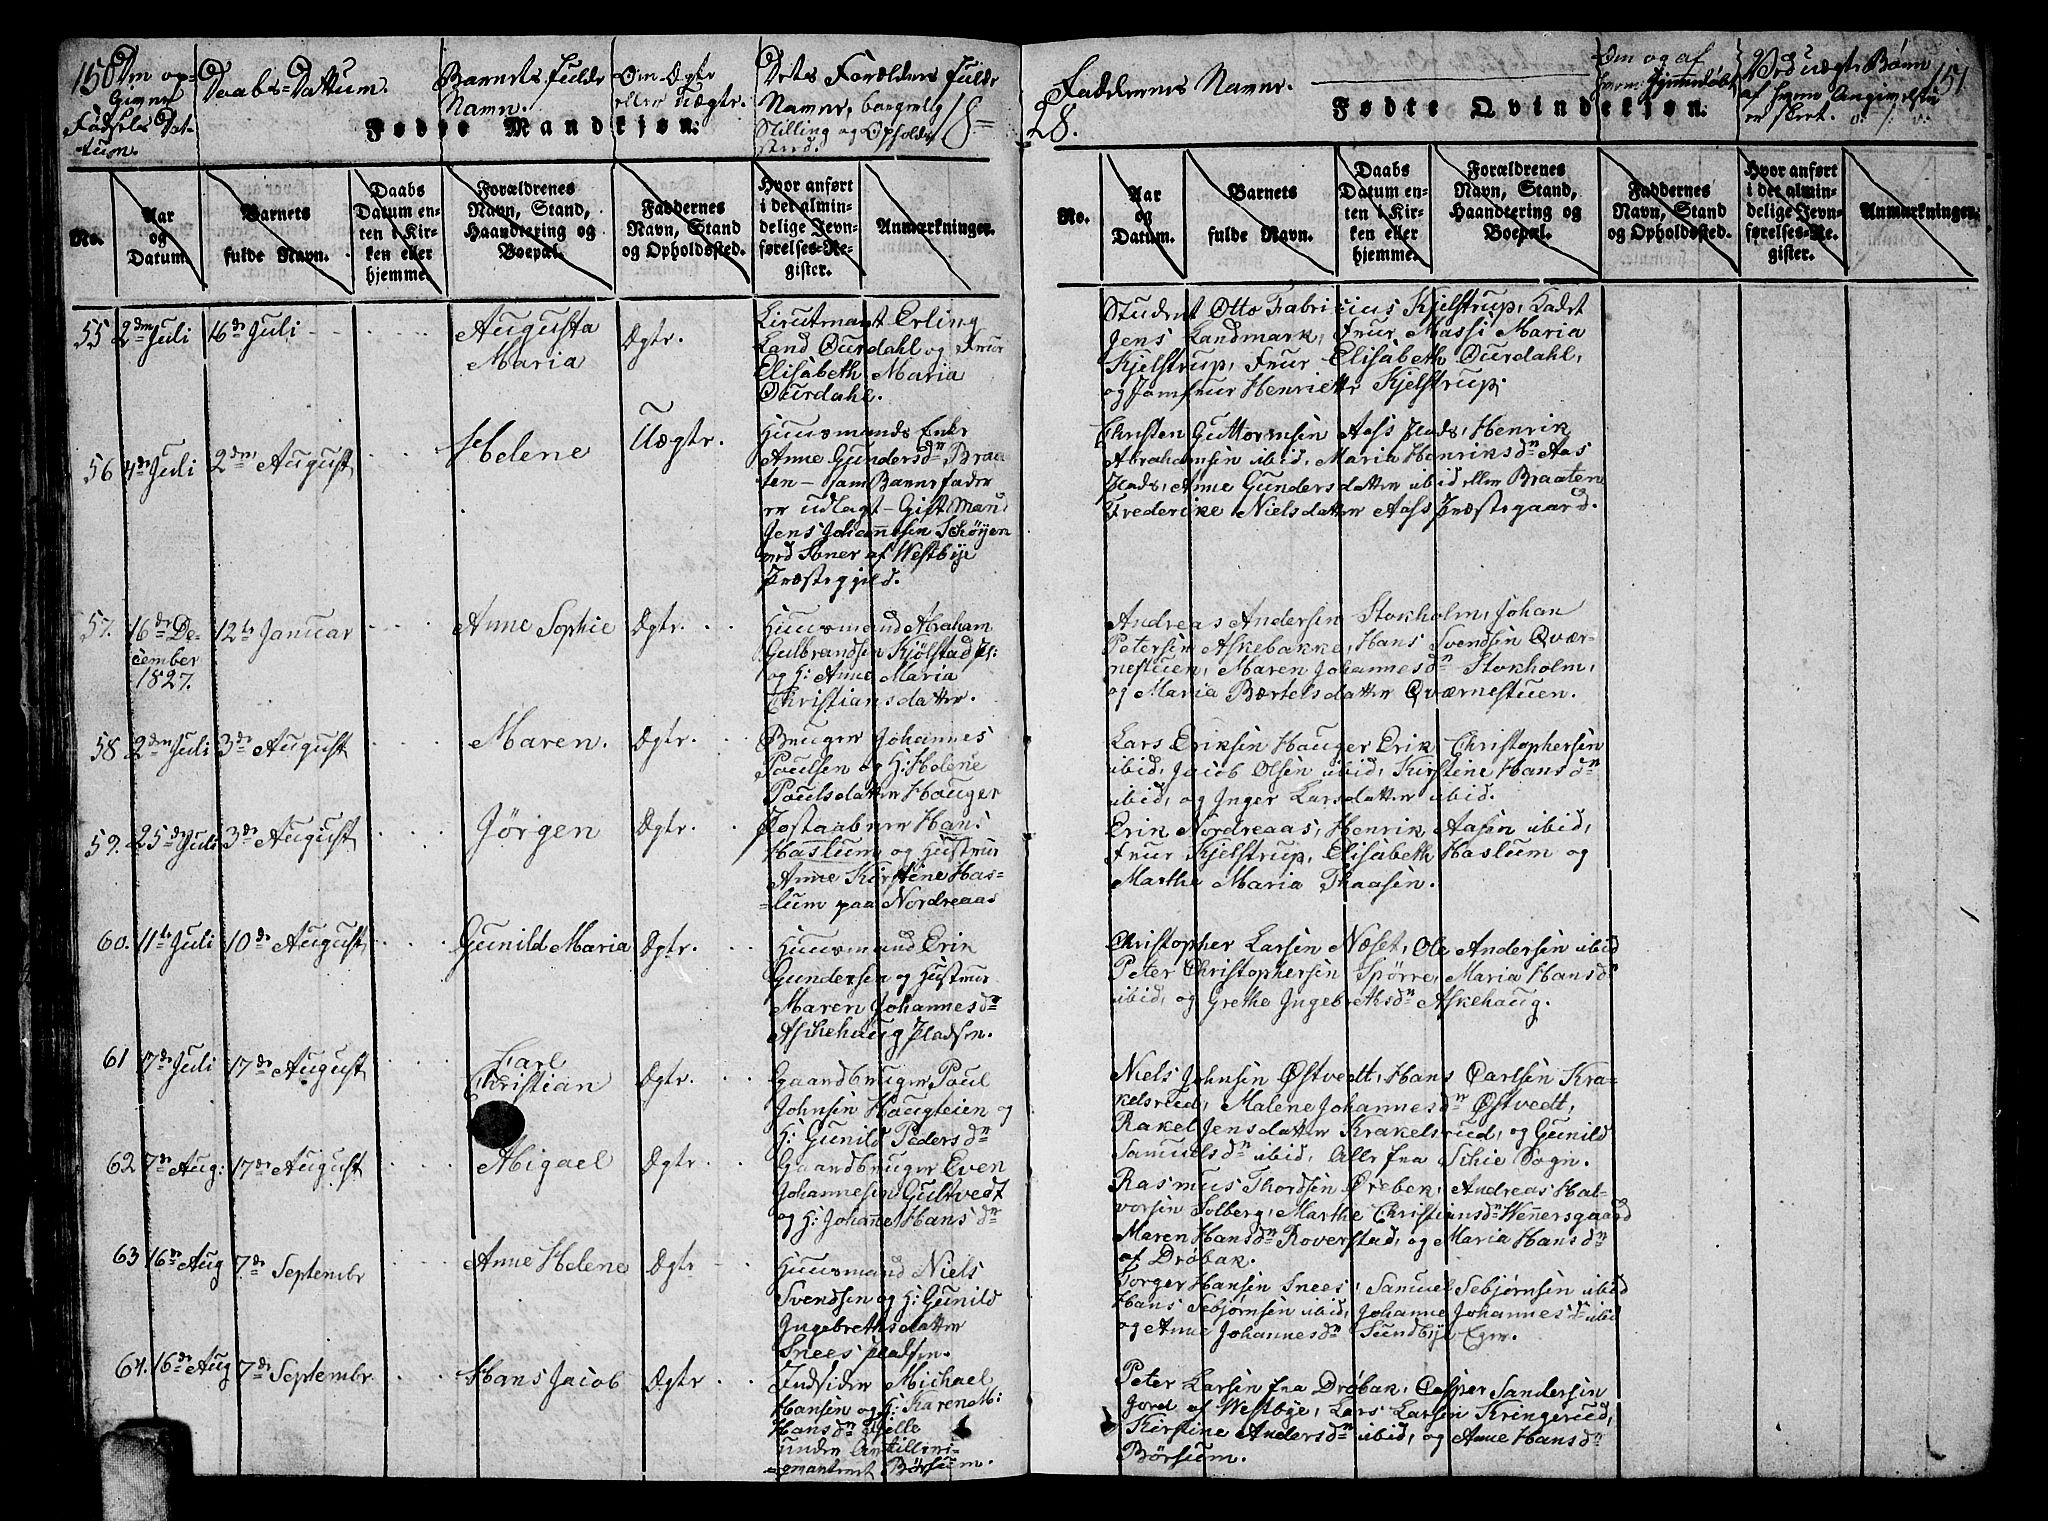 150 Den op-
Givne
Fødsels Dat-
tum.
Daabs-Dattum.
Barnets fulde
Navn.
Om Ægte
eller Uægte.
Dets Forældres fulde
Navne, borgerlig
Stilling og Opholds
sted.
18=
Fødte Mandkjøn:
No.
Aar
og
Datum.
Barnets
fulde Navn.
Daabs
Datum en-
ten i Kir-
ken eller
hjemme.
Forældrenes
Navn, Stand,
Haandtering og
Boepæl.
Faddernes
Navn, Stand
og Opholdssted.
Hvor anført
i det almin-
delige Jevn-
førelses-Re-
gister.
Anmærkninger.
28.
Faddernes Navne.
Om og af
hvem Hjemmedøbt
Ved uægte Børn
af hvem Angivelsen
er skeet.
151
Fødte Qvindekjøn.
No.
Aar
og
Datum.
Barnets
fulde Navn.
Daabs
Datum en-
ten i Kir-
ken eller
hjemme.
Forældrenes
Navn, Stand,
Haandtering og
Boepæl.
Faddernes
Navn, Stand
og Opholdssted.
Hvor anført
i det almin-
delige Jevn-
førelses-Re-
gister.
Anmærkninger.
55 2den Juli 16de Juli
Augusta
Maria
Ægte.
Lieutnant Erling
Land Ourdahl og Frue
Elisabeth Maria
Ourdahl.
Student Otto Fabricius Kjelstrup, Cadet
Jens Landmark, Frue Massi Maria
Kjelstrup, Frue Elisabeth Ourdahl,
og Jomfrue Henriette Kjelstrup.
56 4de Juli 2den August
Helene
Uægte.
Huusmands Enke
Anne Gundersdn Braa
ten - som Barnefader
er udlagt - Gift Mand
Jens Johannesen Schøyen
ved Soner af Westbye
Præstegjeld.
Christen Guttormsen Aass Plads, Henrik
Abrahamsen ibid, Maria Henriksdn Aas
Plads, Anne Gundersdatter ibid eller Braaten
Frederike Nielsdatter Aass Præstegaard.
57. 16de De-
cember
1827.
12te Januar
Anne Sophie
Ægte.
Huusmand Abraham
Gulbrandsen Kjølstad Pl:
og H: Anne Maria
Christiansdatter.
Andreas Andersen Stokholm, Johan
Petersen Askebakke, Hans Svendsen Qvær-
nestuen, Maren Johannesdn Stokholm,
og Maria Bertelsdatter Qværnestuen.
58 2den Juli 3de August
Maren.
Ægte.
Bruger Johannes
Poulsen og H: Helene
Poulsdatter Hauger
Lars Eriksen Hauger, Erik Christophersen
ibid, Jacob Olsen ibid, Kirstine Hansdn
ibid, og Inger Larsdatter ibid.
59. 25de Juli 3de August
Jörgen
Ægte.
Postaabner Hans
Haslum og Hustrue
Anne Kirstine Has-
lum paa Nordreaas
Erik Nordreaas, Henrik Aasen ibid,
Frue Kjelstrup, Elisabeth Haslum og
Marthe Maria Thaasen.
60. 11te Juli 10de August
Gunild Maria
Ægte.
Huusmand Erik
Gundersen og Hustrue
Maren Johannesdn
Askehaug Pladsen.
Christopher Larsen Næset, Ole Andersen ibid
Peter Christophersen Spörre, Maria Hansdn
ibid, og Grethe Ingebrethsdn Askehaug.
61 7de Juli 17de August
Carl
Christian
Ægte.
Gaardbruger Poul
Johnsen Haugteien og
H: Gunild Pedersdn
Niels Johnsen Østvedt, Hans Carlsen Kra-
kelsrud, Malene Johannesdn Østvedt,
Rakel Jensdatter Krakelsrud, og Gunild
Samuelsdn ibid, Alle fra Schie Sogn.
62 7de Aug: 17de August
Abigael
Ægte.
Gaardbruger Even
Johannesen Gultvedt
og H: Johanne Hansdn
Rasmus Thordsen Ørebek, Andreas Hal-
vorsen Solberg, Marthe Christiansdn Wennersgaard
Maren Hansdn Roverstad, og Maria Hansdn
af Drøbak.
63 16de Aug 7de Septembr
Anne Helene
Ægte
Huusmand Niels
Svendsen og H: Gunild
Ingebrethsdatter
Snees pladsen.
Torger Hansen Snees, Samuel Sebjørnsen ibid
Hans Sebjørnsen ibid, Johanne Johannesdn ibid
og Anne Johannesdn Sundbye Eger.
64. 16de Aug 7de Septembr.
Hans Jacob
Ægte.
Indsidder Michael
Hansen og H: Karen M:
Hansdn Pelle
under Artilleri-
Børsum.
Peter Larsen fra Drøbak, Casper Sandersen
Jord af Westbye, Lars Larsen Kringerud,
Kirstine Andersdn ibid, og Anne Hansdn
Börsum.